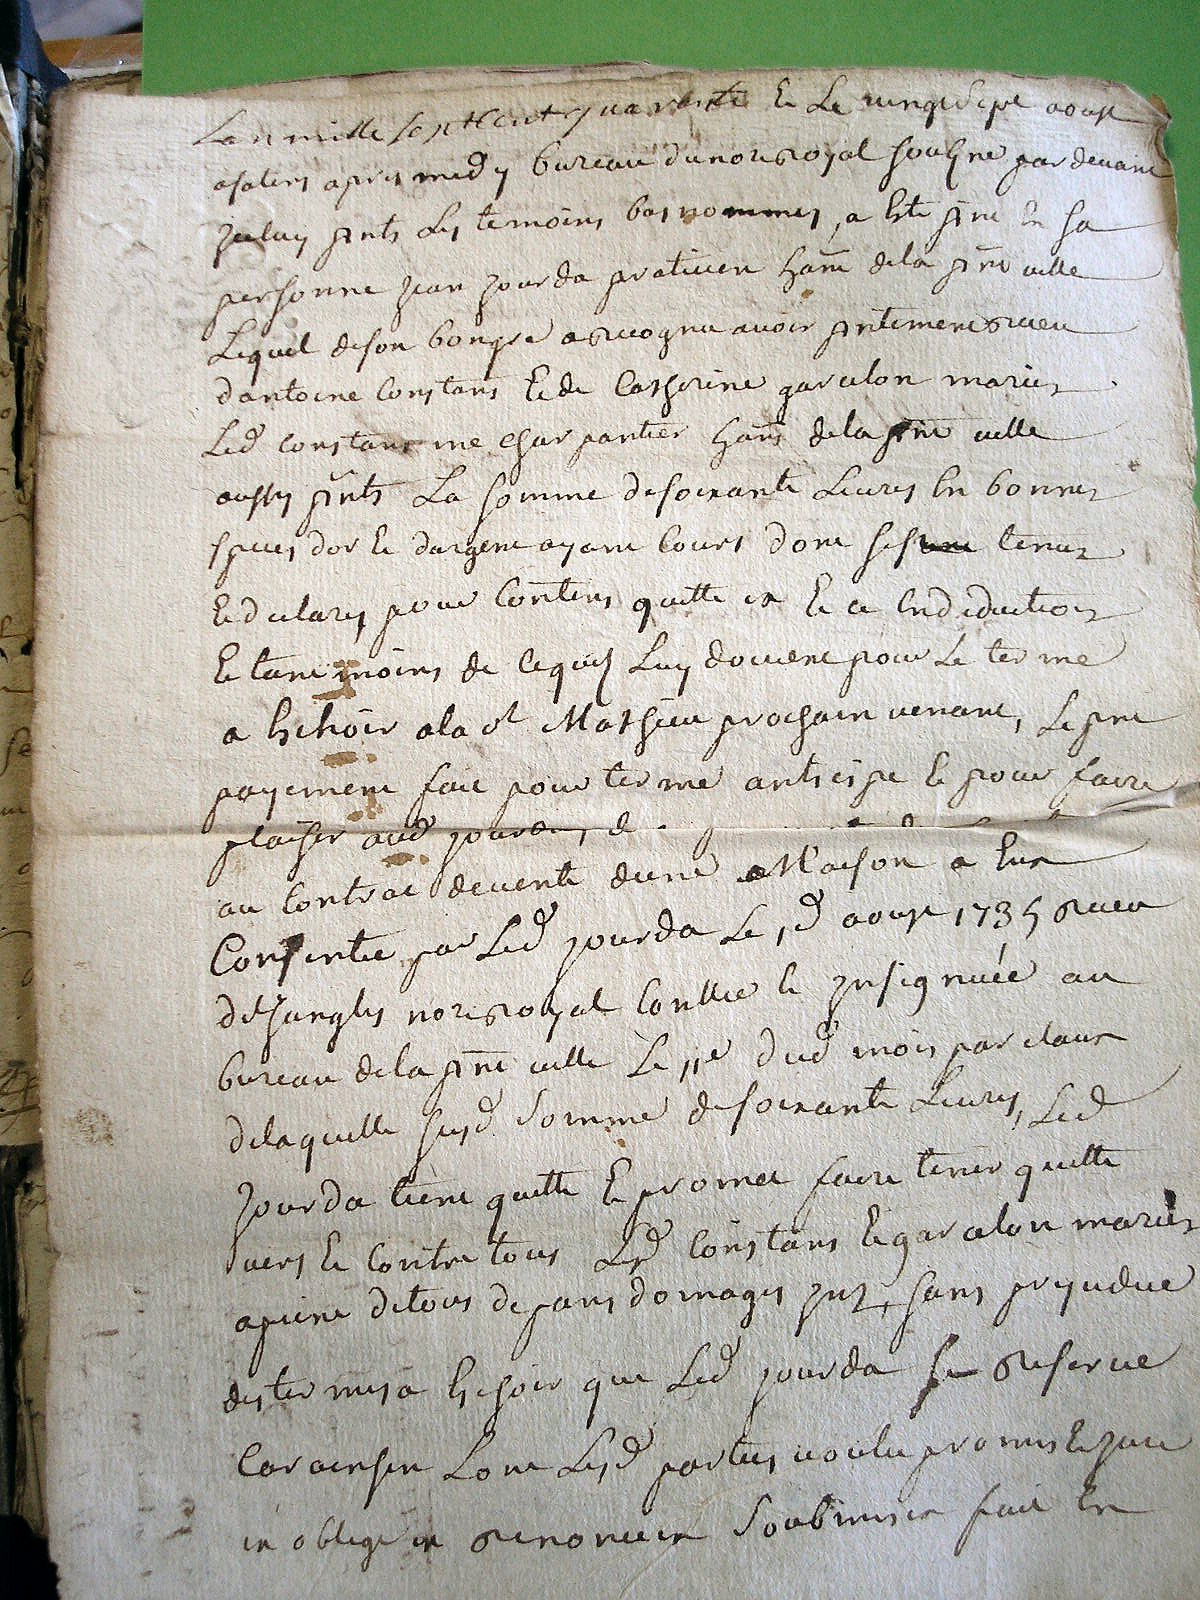 Lan mille sept cent quarante Et Le vingt sept aoust
asalers apres midy bureau du nore Royal soubsne par devant
Jceluy pnts Les temoins bas nommes, a Este pnt En sa
personne Jean Jourda praticien hant dela pnte ville
Lequel deson bon gre a Recognu avoir pntement Receu
dantoine Constans Et de Catherine garcelon maries
Led Constans me Charpantier hant dela pnte ville
aussy pnts La somme desoixante Livres En bonnes
speces dor Et dargent ayant Cours dont sest tenu
Et declares pour Contens quitte Et ce En deduction
Et tant moins de Ce quil Luy doivent pour Le terme
a Echoir ala st Mathieu prochain venant, Le pnt
payement fait pour terme anticipe Et pour faire
plaisir aud Jourda,
au Contrat de vente dune Maison a Eux
Consentie par Led Jourda Le d aoust 1735 Receu
nore Royal Controlle Et Jnsignuée au
bureau dela pnte ville Le 11e dud mois par
delaquelle susd somme desoixante Livres, Led
Jourda tient quitte Et promet faire tenir quitte
vers Et Contre tous Lesd Constans Et garcelon maries
apeine detous depans domages Jnts, sans prejudice
des termes a Echoir que Led Jourda se Reserve
Car ainsin Lont Lesd parties voulu promis Et Jure
oblige Renoncer Soubmis fait En